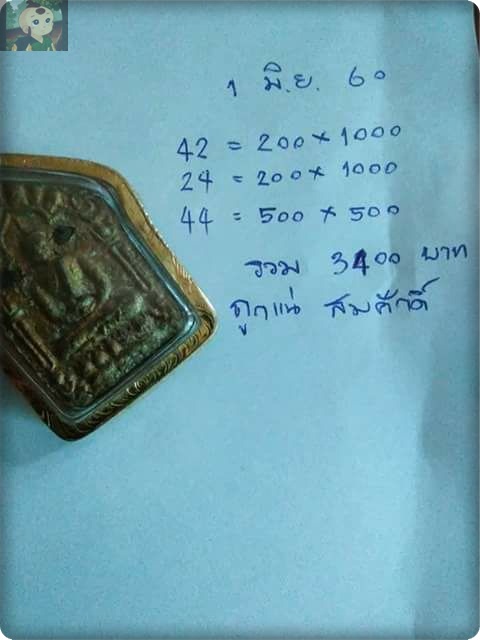 1 มิ.ย. 60
42 = 200 × 1000
24 = 200 × 1000
44 = 500 × 500
รวม 3400 บาท
ถูกแน่ สมศักดิ์